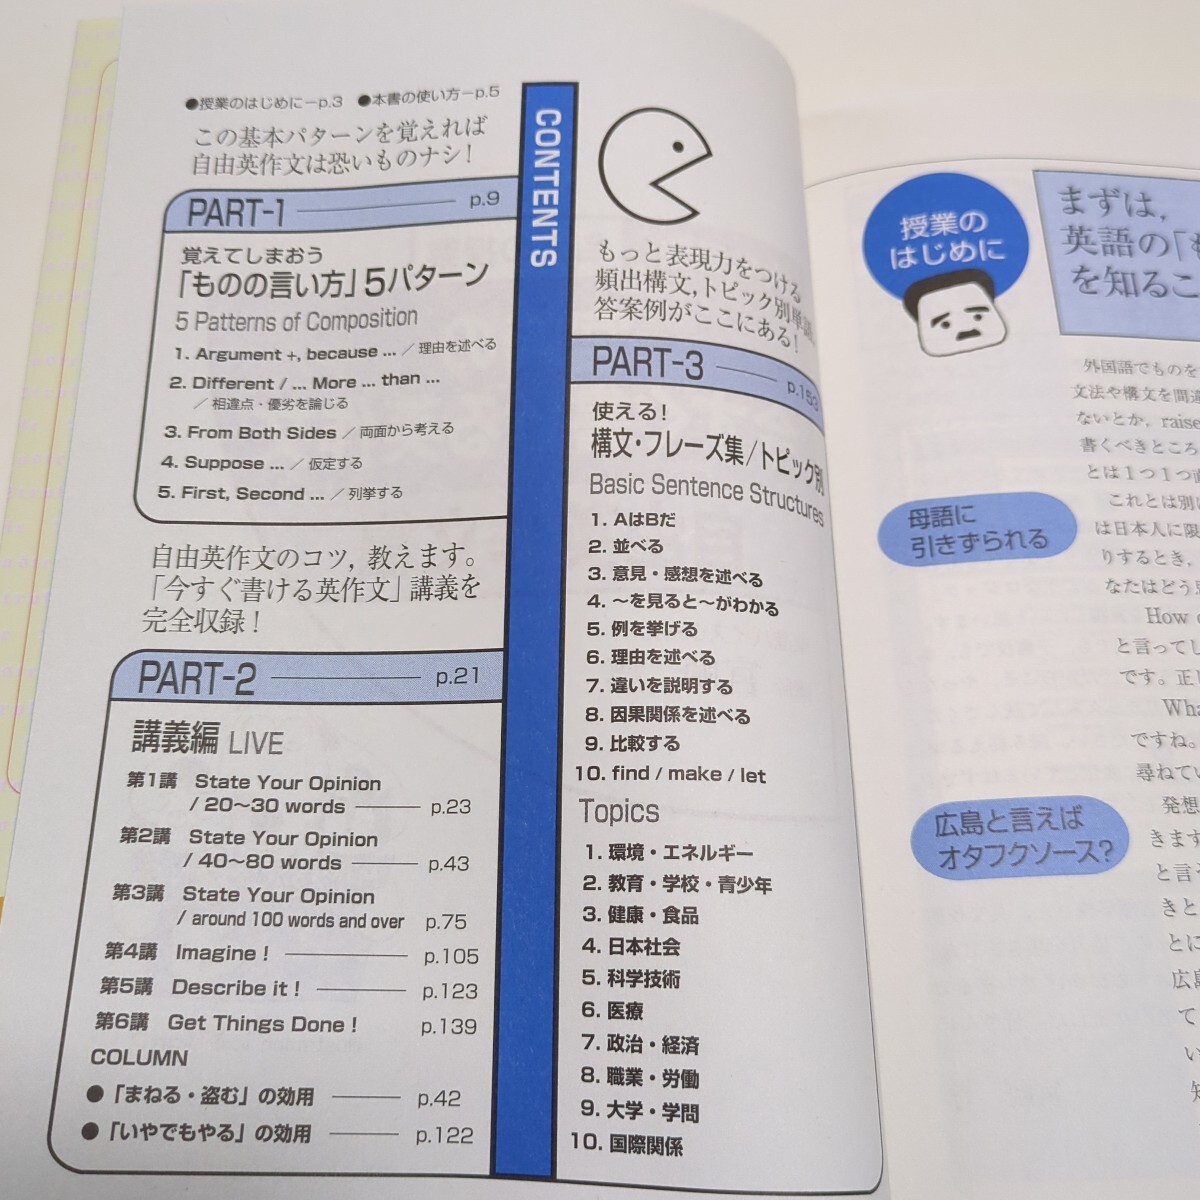 ●授業のはじめに－p.3 ●本書の使い方－p.5
この基本パターンを覚えれば
自由英作文は恐いものナシ！
PART-1 p.9
覚えてしまおう
「ものの言い方」5パターン
5 Patterns of Composition
1. Argument +, because ... ／理由を述べる
2. Different / ... More ... than ...
／相違点・優劣を論じる
3. From Both Sides ／両面から考える
4. Suppose ... ／仮定する
5. First, Second ... ／列挙する
自由英作文のコツ，教えます。
「今すぐ書ける英作文」講義を
完全収録！
PART-2 p.21
講義編 LIVE
第1講 State Your Opinion
/ 20〜30 words p.23
第2講 State Your Opinion
/ 40〜80 words p.43
第3講 State Your Opinion
/ around 100 words and over p.75
第4講 Imagine ! p.105
第5講 Describe it ! p.123
第6講 Get Things Done ! p.139
COLUMN
●「まねる・盗む」の効用 p.42
●「いやでもやる」の効用 p.122
CONTENTS
もっと表現力をつける
頻出構文，トピック別単語，
答案例がここにある！
PART-3 p.153
使える！
構文・フレーズ集／トピック別
Basic Sentence Structures
1. AはBだ
2. 並べる
3. 意見・感想を述べる
4. 〜を見ると〜がわかる
5. 例を挙げる
6. 理由を述べる
7. 違いを説明する
8. 因果関係を述べる
9. 比較する
10. find / make / let
Topics
1. 環境・エネルギー
2. 教育・学校・青少年
3. 健康・食品
4. 日本社会
5. 科学技術
6. 医療
7. 政治・経済
8. 職業・労働
9. 大学・学問
10. 国際関係
授業の
はじめに
まずは，
英語の「
を知るこ
外国語でものを
文法や構文を間違
ないとか，raise
書くべきところ
とは1つ1つ直
母語に
引きずられる
これとは別に
は日本人に限
りするとき，
なたはどう思
How
と言ってし
です。正し
Wha
ですね。
尋ねてい
広島と言えば
オタフクソース？
発想
きます
と言
きと
とに
広島
て
い
知